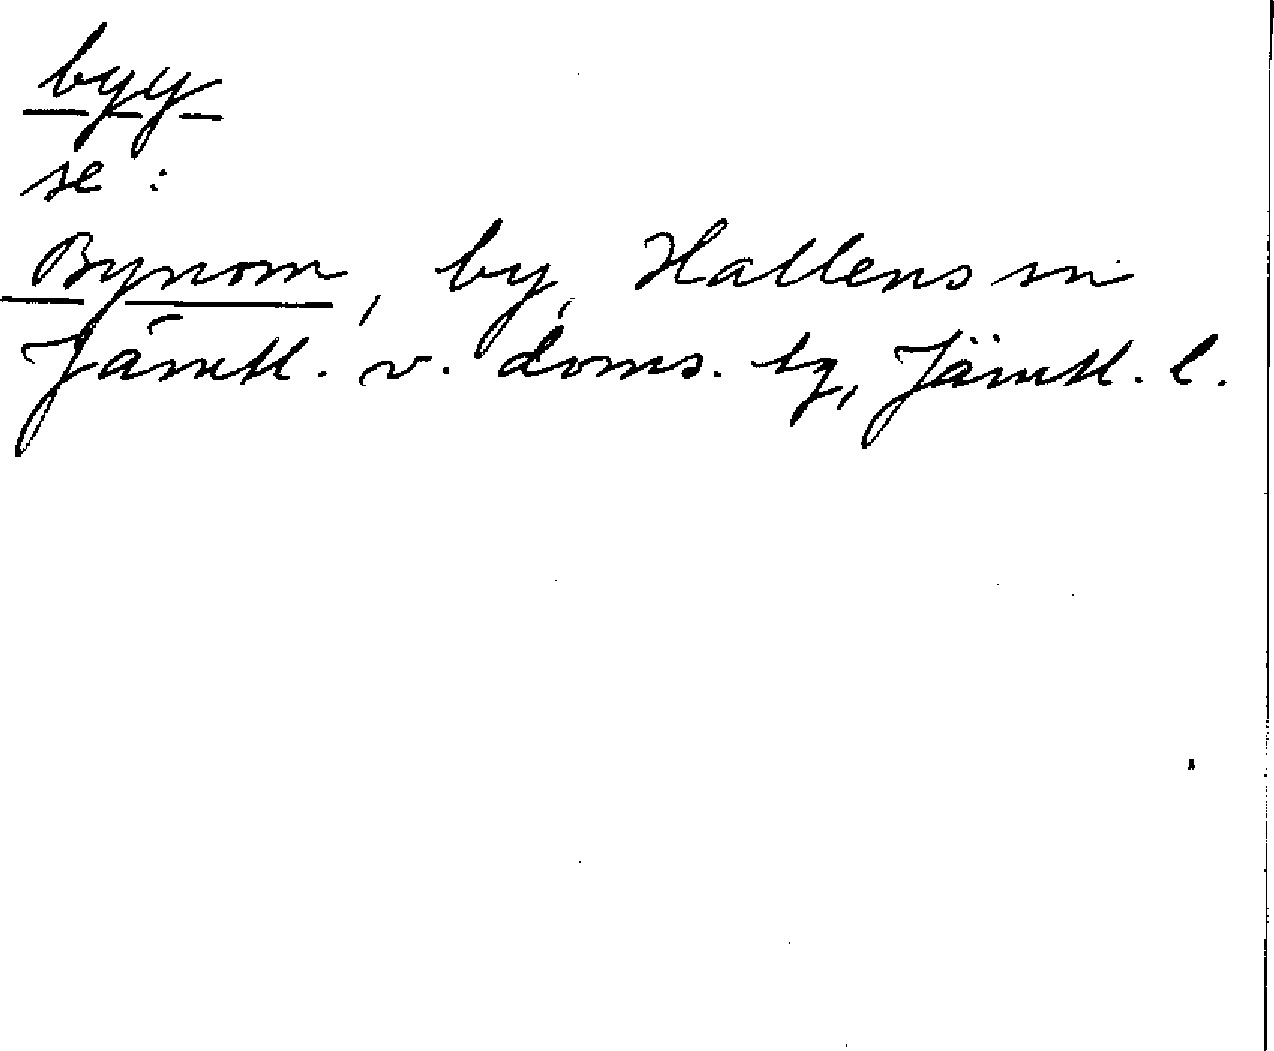 byy
se:
Bynom, by, Hallens sn
Jämtl. v. doms. tg, Jämtl. l.